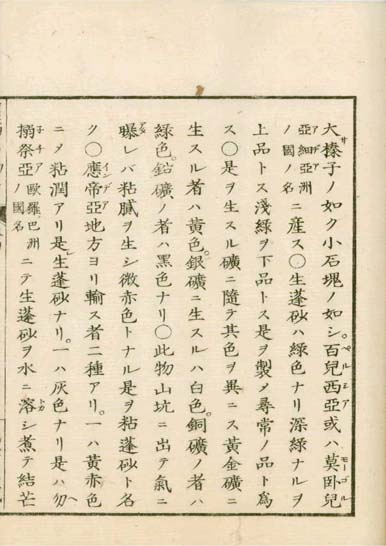 大榛子ノ如ク小石塊ノ如シ。百兒西亞或ハ莫卧兒
亞細亞洲ノ國ノ名ニ産ス〇生蓬砂ハ綠色ナリ深綠ナルヲ
上品トス淺綠ヲ下品トス是ヲ製メ尋常ノ品ト爲
ス〇是ヲ生スル礦ニ隨テ其色ヲ異ニス黄金礦ニ
生スル者ハ黄色。銀礦ニ生スルハ白色。銅礦ノ者ハ
綠色。鉛礦ノ者ハ黑色ナリ〇此物山坑ニ出テ氣ニ
曝レバ粘膩ヲ生シ微赤色トナル是ヲ粘蓬砂ト名
ク〇應帝亞地方ヨリ輸ス者二種アリ。一ハ黄赤色
ニメ粘潤アリ是レ生蓬砂ナリ。一ハ灰色ナリ是ハ勿
搦祭亞歐羅巴洲ノ國名ニテ生蓬砂ヲ水ニ溶シ煮テ結芒